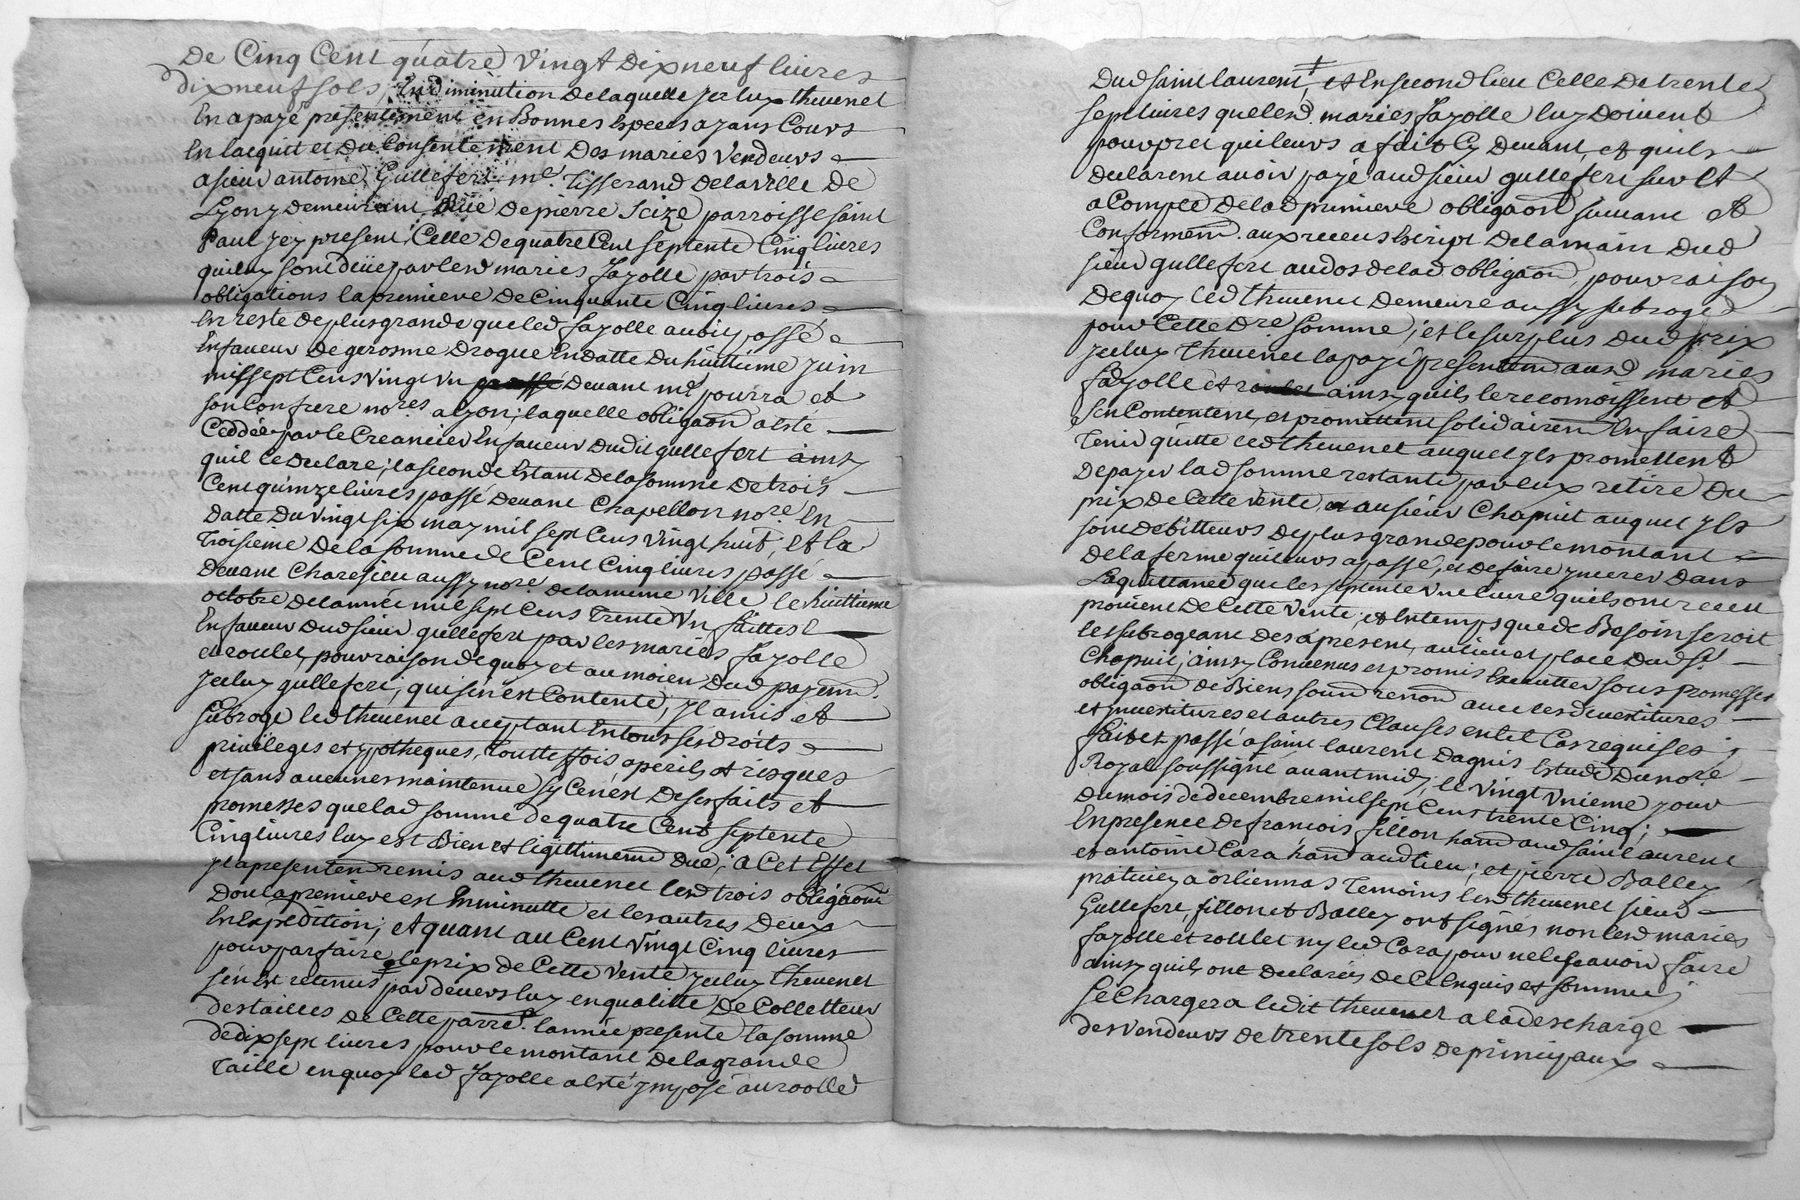 De Cinq Cent quatre Vingt Dixneuf livres
Dixneuf sols, En diminution delaquelle Jceluy thevenet
En a payé presentement en Bonnes Especes ayans Cours
En lacquit et du Consentement Des maries Vendeurs
a sieur antoine Gullefert me. Tisserand Delaville De
Lyon y Demeurant Rüe Depierre Scize parroisse saint
Paul Jcy present, Celle Dequatre Cent septente Cinq livres
qui luy sont deüe par lesd maries fayolle par trois
obligations la premiere De Cinquante Cinq livres
En reste De plus grande que led fayolle avoit passé
En faveur De gerosme Drogue En datte Du huittieme Juin
mil sept Cens Vingt Vn Devant me pourra et
son Confrere nores a Lyon; laquelle obligaon a esté
Ceddée par le Creancier En faveur Dudit gullefert ainsy
quil le Declare; la seconde Estant De la somme De trois
Cent quinze livres passé Devant Chapellon nore. En
Datte Du Vingt six may mil sept Cens Vingt huit, et la
Troisieme De la somme de Cent Cinq livres passé
Devant Charesieu aussy nore. de la meme Ville le huittieme
octobre De lannée mil sept Cens Trente Vn faittes
En faveur Dud sieur gullefert par les maries fayolle
et roulet, pour raison De quoy et au moien Dud payemt.
Jceluy gullefert, qui sen est Contenté, Jl a mis et
subrogé led thevenet acceptant En tous ses Droits
privileges et ypotheques, Touttesfois a perils et risques
et sans aucunes maintenue sy Cen est De ses faits et
promesses que lad somme de quatre Cent septente
Cinq livres luy est Bien et legittimement Due; a Cet Effet
Jl a presentem remis aud thevenet lesd trois obligaons
Dont la premiere est En minutte et les autres Deux
En Expedition; et quant au Cent Vingt Cinq livres
pour parfaire le prix de Cette Vente Jceluy thevenet
sen est retenus par devers luy en qualitte De Collecteur
des tailles de Cette parre. lannée presente la somme
de dix sept livres pour le montant De la grande
Taille en quoy led fayolle a esté Jmposé au roolle
Dud saint laurent, et En second lieu Celle De trente
sept livres que lesd. maries fayolle luy Doivent
pour pret qui leurs a fait Cy Devant et quils
declarent avoir payé aud sieur gullefert sur Et
a Compte De lad premiere obligaon suivant et
Conformem. aux receus Escript De la main Dud
sieur gullefert au dos de lad obligaon, pour raison
De quoy led thevenet Demeure aussy subrogé
pour Cette Dre somme; et le surplus Dud prix
Jceluy thevenet la payé presentem ausd maries
fayolle et ainsy quils le reconnoissent et
sen Contentent, et promettent solidairem En faire
Tenir quitte led thevenet auquel Jls promettent
De payer lad somme restante par Eux retiré Du
prix de Cette Vente, au sieur Chapuit auquel Jls
sont Debitteurs De plus grande pour le montant
de la ferme qui leurs a passé, et de faire Jnserer Dans
La quittance que les septente Vne livre quils ont receu
provient De Cette Vente; et En temps que de Besoin seroit
les subrogeant Des a present, au lieu et place Dud Sr.
Chapuit; ainsy Convenus et promis Executter sous promesses
obligaon de Biens soum renon avec les devestitures
et Jnvestitures et autres Clauses en tel Cas requises;
fait et passé a saint laurent Dagnis Estude Du nore
Royal soussigné avant midy, le Vingt Vnieme Jour
Du mois de decembre mil sept Cens trente Cinq;
En presence De francois fillon hand aud saint laurent
et antoine Cara hand aud lieu; et pierre Balley
praticien a orliennas Temoins led thevenet sieur
Gullefert, fillon et Balley ont signés non lesd maries
fayolle et roulet ny led Cara pour ne le scavoir faire
ainsy quils ont declarés De Ce Enquis et sommés
Se Chargera ledit thevenet a la descharge
des Vendeurs de trente sols de principaux